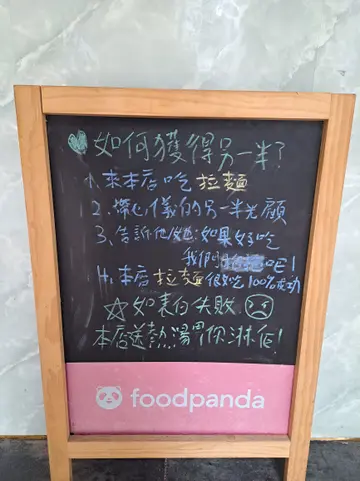 如何獲得另一半?
1. 來本店吃拉麵
2. 帶心儀的另一半光顧
3. 告訴他/她:如果好吃
我們 吧!
4. 本店拉麵很好吃100%成功
☆如表白失敗☹
本店送熱湯 你淋他!
foodpanda